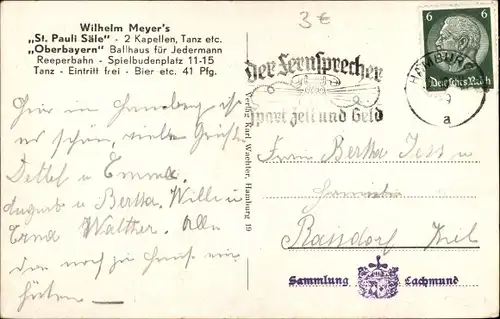 Wilhelm Meyer's
„St. Pauli Säle" - 2 Kapellen, Tanz etc.
„Oberbayern" Ballhaus für Jedermann
Reeperbahn - Spielbudenplatz 11-15
Tanz - Eintritt frei - Bier etc. 41 Pfg.
3€
6 6
Deutsches Reich
HAMBURG
a
Der Fernsprecher
spart Zeit und Geld
Verlag Karl Waechter, Hamburg 19
Hier in Hamburg ist
es schön, viele Grüße
Detlef u Emma
August u Bertha. Willi u
Erna Walther. Alle
die noch zu Hause ein
hüten
Frau Bertha Jess u
Raisdorf Kiel
Sammlung Lachmund